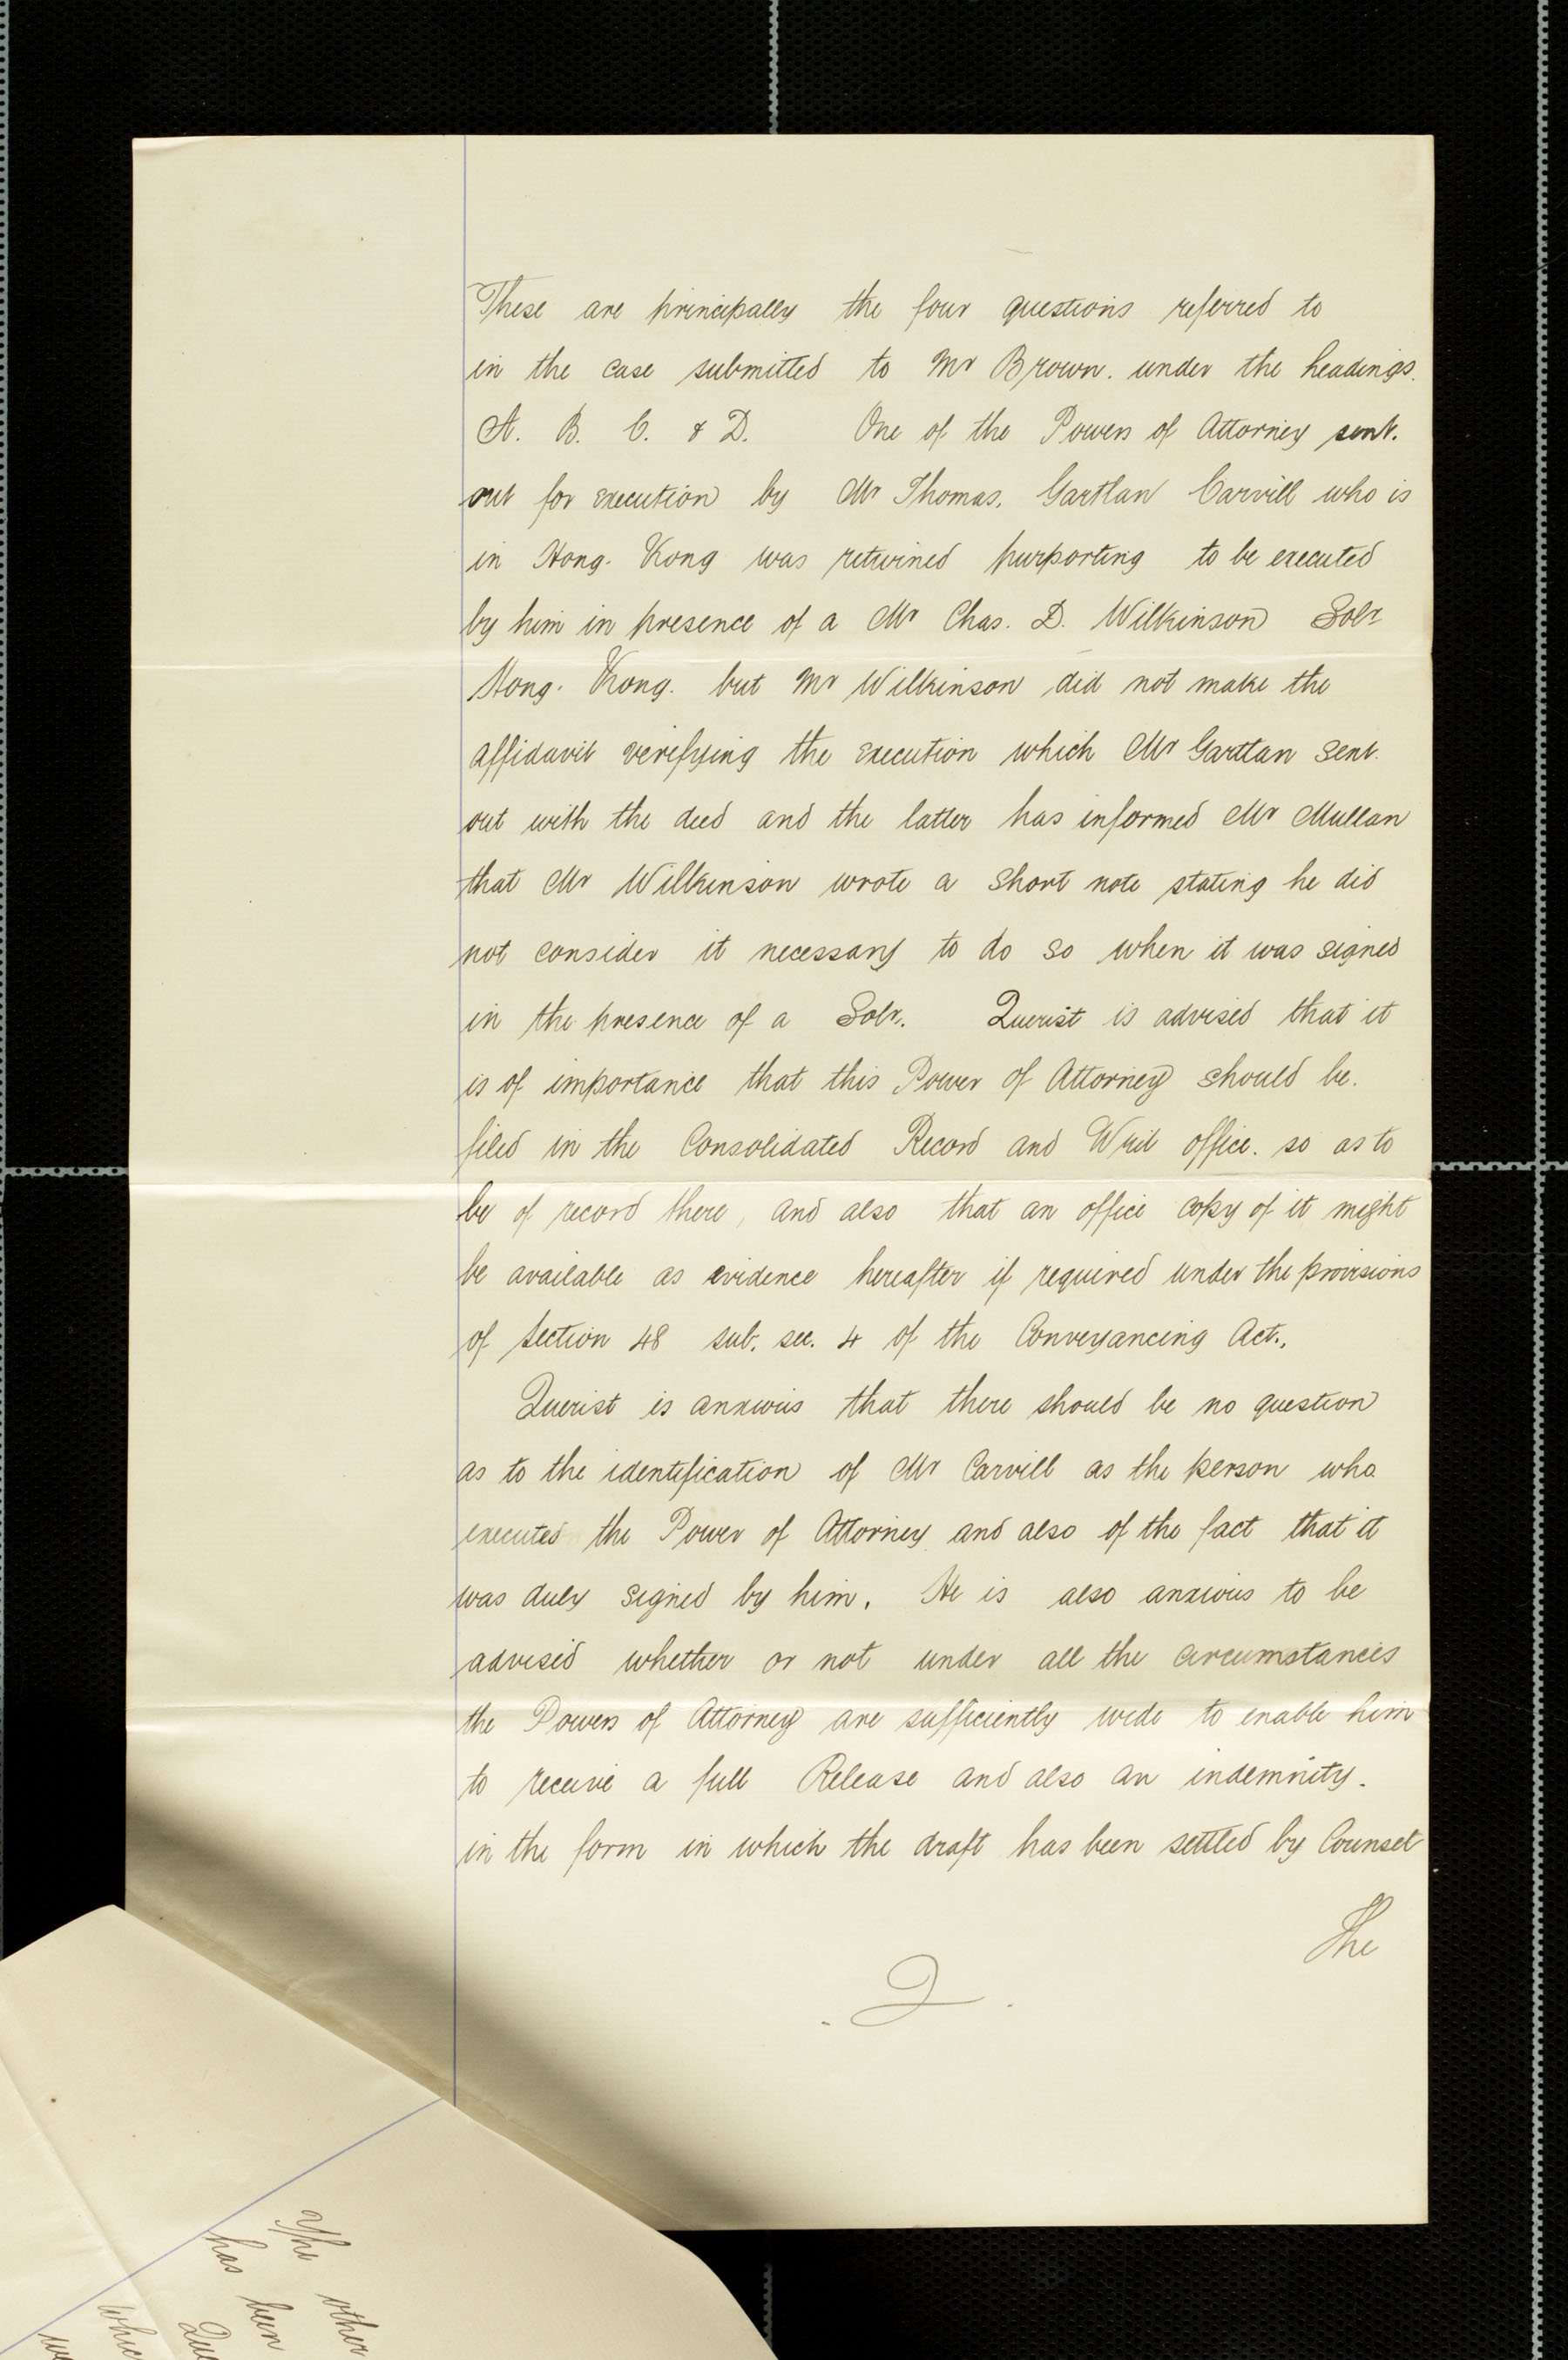 These are principally the four questions referred to
in the case submitted to Mr Brown. under the headings.
A. B. C. & D. One of the Powers of Attorney sent.
out for execution by Mr Thomas. Gartlan Carvill who is
in Hong. Kong was returned purporting to be executed
by him in presence of a Mr Chas. D. Wilkinson Solr
Hong. Kong. but Mr Wilkinson did not make the
affidavit verifying the execution which Mr Gartlan sent.
out with the deed and the latter has informed Mr Mullan
that Mr Wilkinson wrote a short note stating he did
not consider it necessary to do so when it was signed
in the presence of a Solr. Querist is advised that it
is of importance that this Power of Attorney should be.
filed in the Consolidated Record and Writ office. so as to
be of record there, and also that an office copy of it might
be available as evidence hereafter if required under the provisions
of section 48 sub. sec. 4 of the Conveyancing Act.,
Querist is anxious that there should be no question
as to the identification of Mr Carvill as the person who
executed the Power of Attorney and also of the fact that it
was duly signed by him. He is also anxious to be
advised whether or not under all the circumstances
the Powers of Attorney are sufficiently wide to enable him
to receive a full Release and also an indemnity.
in the form in which the draft has been settled by Counsel
The
. 2 .
The other
has been
Que
whic
we